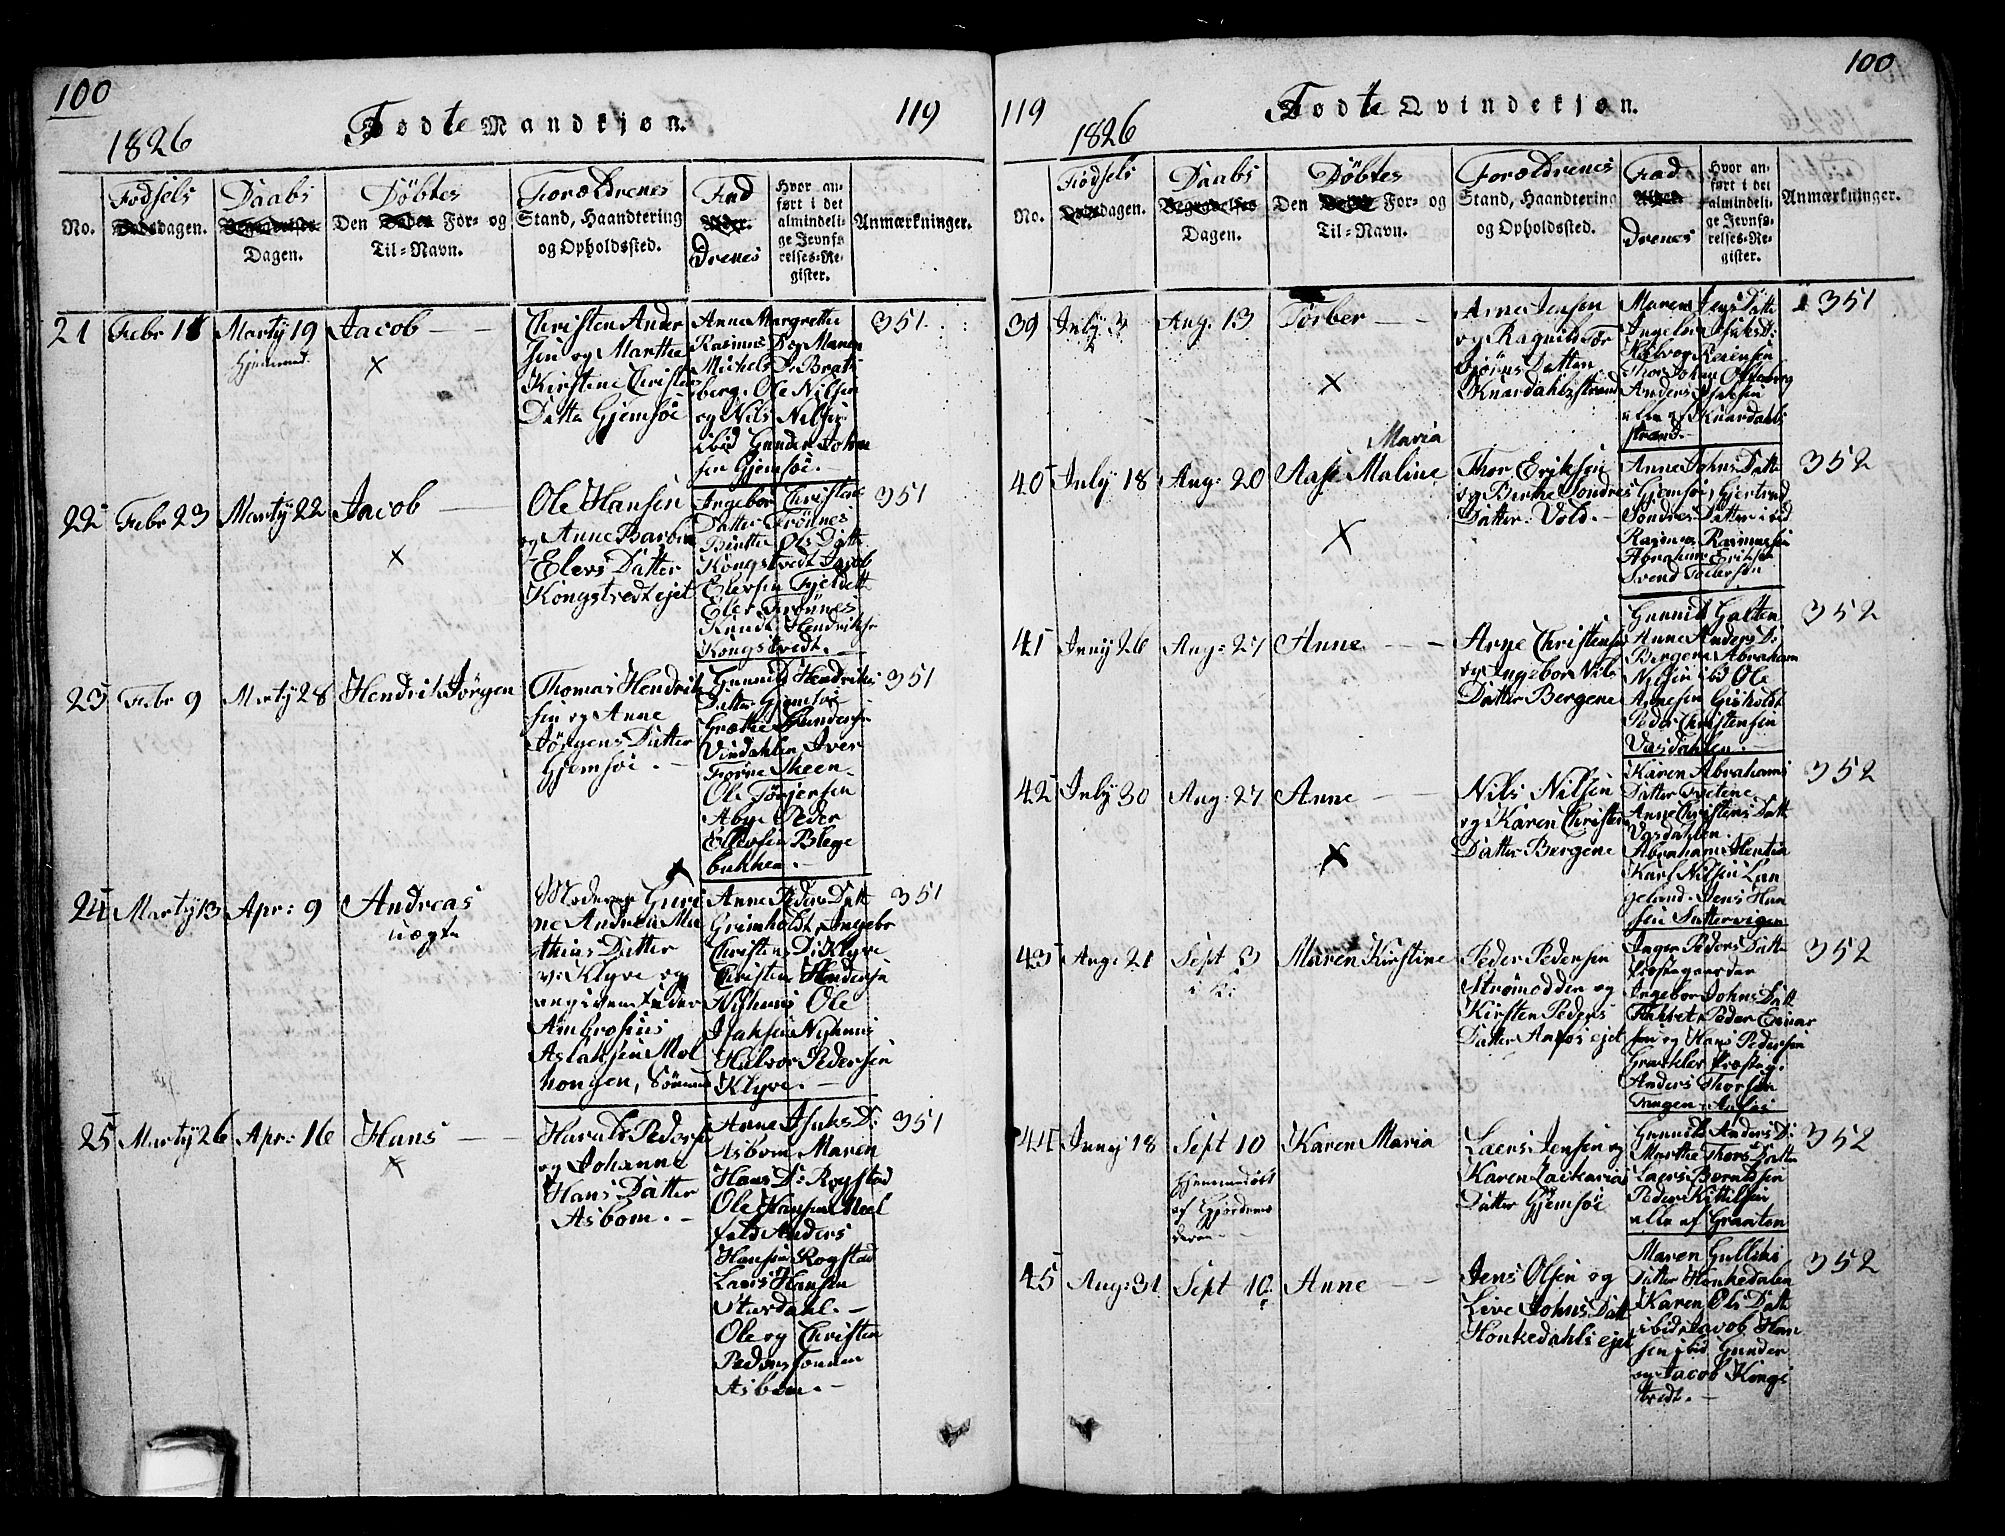 100
119
Fødte Mandkjøn.
1826
No.
Fødsels
dagen.
Daabs
Dagen.
Døbtes
Den For= og
Til=Navn.
Forældrenes
Stand, Haandtering
og Opholdssted.
Fad
drenes
Hvor an-
ført i det
almindeli-
ge Jevnfø
relses=Re-
gister.
Anmærkninger.
21 Febr 11 Marty 19 Jacob
Hjemmed.
Christen Ander
sen og Marthe
Kirstine Christens
Datter Gjemsøe
Anne Margrethe
Rasmus D og Maren
Michels D: Brats
berg. Ole Nilsen
og Nils Nilsen
ibid Gunder Johan
sen Gjemsøe.
351
22 Febr 23 Marty 22 Jacob
Ole Hansen
og Anne Barbra
Elevs Datter
Kongstvedt ejet
Ingebor Christens
Datter Trönnes
Birthe Ols Datt
Kongstvedt Jacob
Elevsen Fjeldett
Elev Trönnes
Knudt Hendrikse
Kongstvedt.
351
23 Febr 9 Marty 28 Hendrik Jörgen
Thomas Hendrik
sen og Anne
Jörgens Datter
Gjemsøe.
Gunnild Hendriks
Datter Gjemsøe
Grethe Gunders
Vindahlen Iver
Forne Skeen.
Ole Törjersen
Abye Peder
Ellevsen Blege
bakken.
351
24 Marty 13 Apr: 9 Andreas
uægte
Moderen Guri
ne Andrea Ma
thias Datter
v: Klyve og
angiven Fader
Ambrosius
Aslaksen Mol
hougen,
Anne Peders Datt
Grimholdt, Ingebor
Christens D: Klyve
Christen Andersen
Nyhuus Ole
Isaksen Nyhuus
Halvor Pedersen
Klyve.
351
25 Marty 26 Apr: 16 Hans
Harald Peders
og Johanne
Hans Datter
Asbom.
Anne Isaks D:
Asbom Maren
Hans D: Rogstad
Ole Hansen Moel
fald Anders
Hansen Rogstad
Laers Hansen
Stordahl.
Ole og Christen
Peders sönner
Asbom.
351
119
100
Fødte Qvindekjøn.
1826
No.
Fødsels
dagen.
Daabs
Dagen.
Døbtes
Den For= og
Til=Navn.
Forældrenes
Stand, Haandtering
og Opholdssted.
Fad
drenes
Hvor an-
ført i det
almindeli-
ge Jevnfø-
relses=Re-
gister.
Anmærkninger.
39 July 3 Aug: 13 Torber
Arne Jensen
og Ragnild Tor
björns Datter
Knardahlsstrand
Maren Jens Datt
Ingeborg Isaks D:
Halvor Reiersen
Thor Johan Ofteberg
Anders Isaksen
alle af Knardahls
strand.
351
40 July 18 Aug: 20 Aase Maline
Maria
Thor Eriksen
og Birthe Sondres
Datter Vold.
Anne Johns Datt
Gjemsøe, Gjertrud
Sondres Datter ibid
Rasmus Rasmussen
Abraham Eriksen
Svend Tollersen
352
41 Juny 26 Aug: 27 Anne
Arne Christensen
og Ingebor Nils
Datter Bergene
Gunnild Galten
Anne Anders D:
Bergene Abraham
Nilsen ibd Ole
Arnesen Gisholdt
Peder Christensen
Vasdahlen.
352
42 July 30 Aug: 27 Anne
Nils Nilsen
og Karen Christens
Datter Bergene
Karen Abrahams
Datter Tvetene
Anne Christens Datt
Vasdahlen.
Abraham Mentia
Karl Nilsen Lan
geland. Jens Han
sen Sattervigen
352
43 Aug: 21 Sept 3 Maren Kirstine
Peder Pedersen
Strømodden og
Kirsten Peders
Datter Anfos ejet
Inger Peders Datt
Præstegaarden
Ingebor Johns Datt
Flakket Peder Einar
sen og Hans Pedersen
Graakler Præsteg.
Anders Thorsen
Tangen Anfos
352
44 Juny 18 Sept 10 Karen Maria
Hjemmedöbt
af Gjordemo
deren
Laers Jensen og
Karen Zackarias
Datter Gjemsøe
Gunnild Anders D:
Marthe Thors Datter
Laers Berntsen
Peder Kittilsen
alle af Graaten
352
45 Aug: 31 Sept 10 Anne
Jens Olsen og
Live Johns Datt
Honkedahls ejet
Maren Gulliks
Datter Honkedalen
Karen Ols Datt
ibid, Jacob Han
sen ibid Gunder
og Jacob Kongs
tvedt.
352